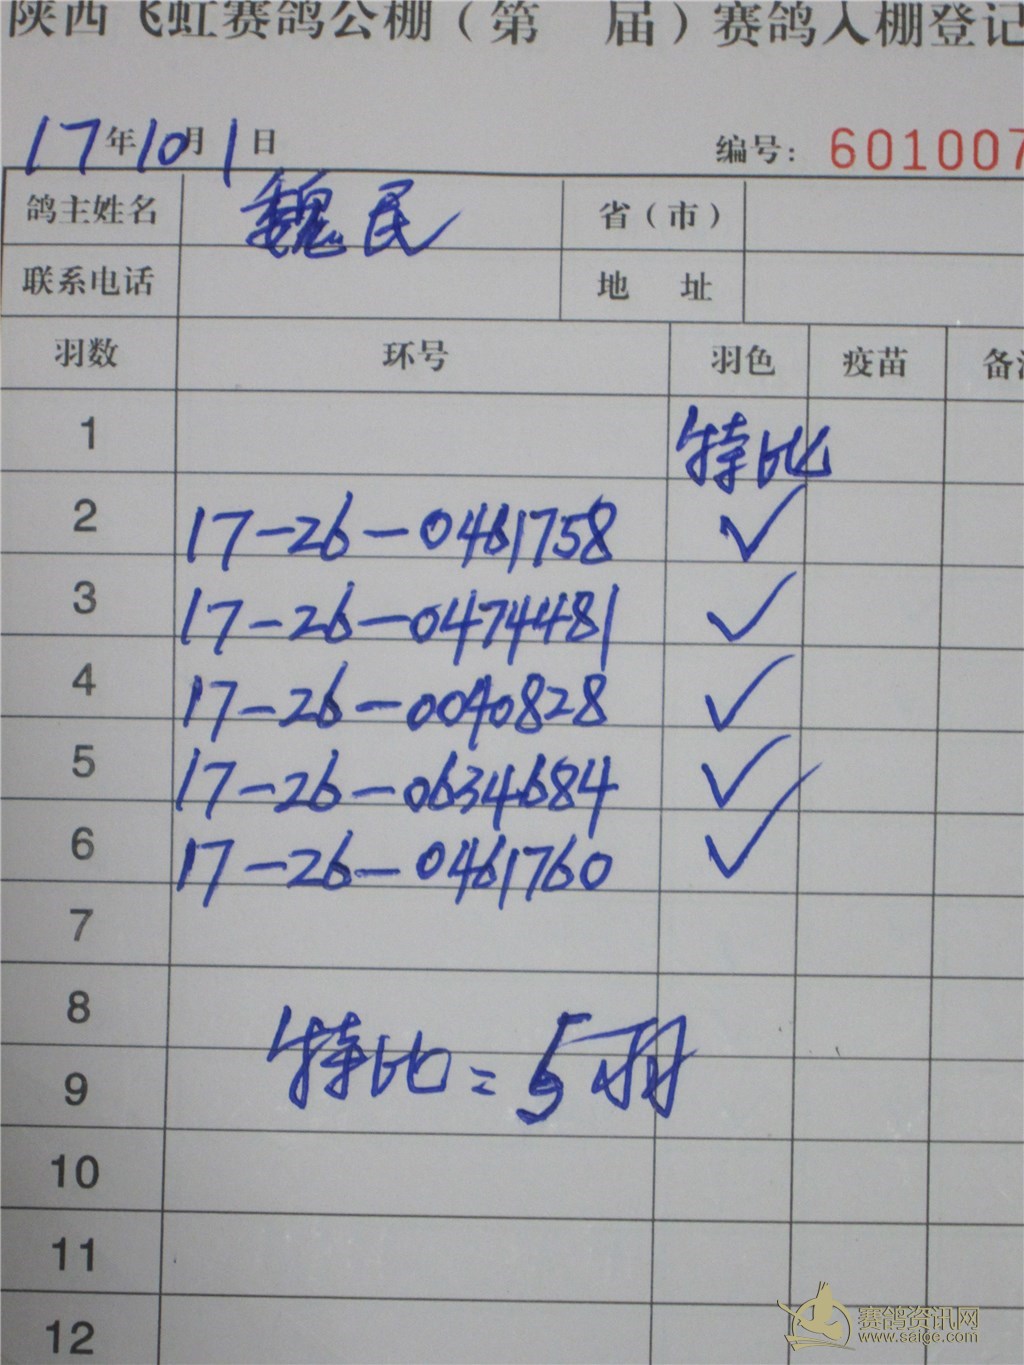 陕西飞虹赛鸽公棚（第 届）赛鸽入棚登记
17年10月1日 编号：601007
鸽主姓名 魏民 省（市）
联系电话 地 址
羽数 环号 羽色 疫苗 备注
1 特比
2 17-26-0461758 ✓
3 17-26-0474481 ✓
4 17-26-0040828 ✓
5 17-26-0634684 ✓
6 17-26-0461760 ✓
7
8
特比=5羽
9
10
11
12
赛鸽资讯网
www.saige.com